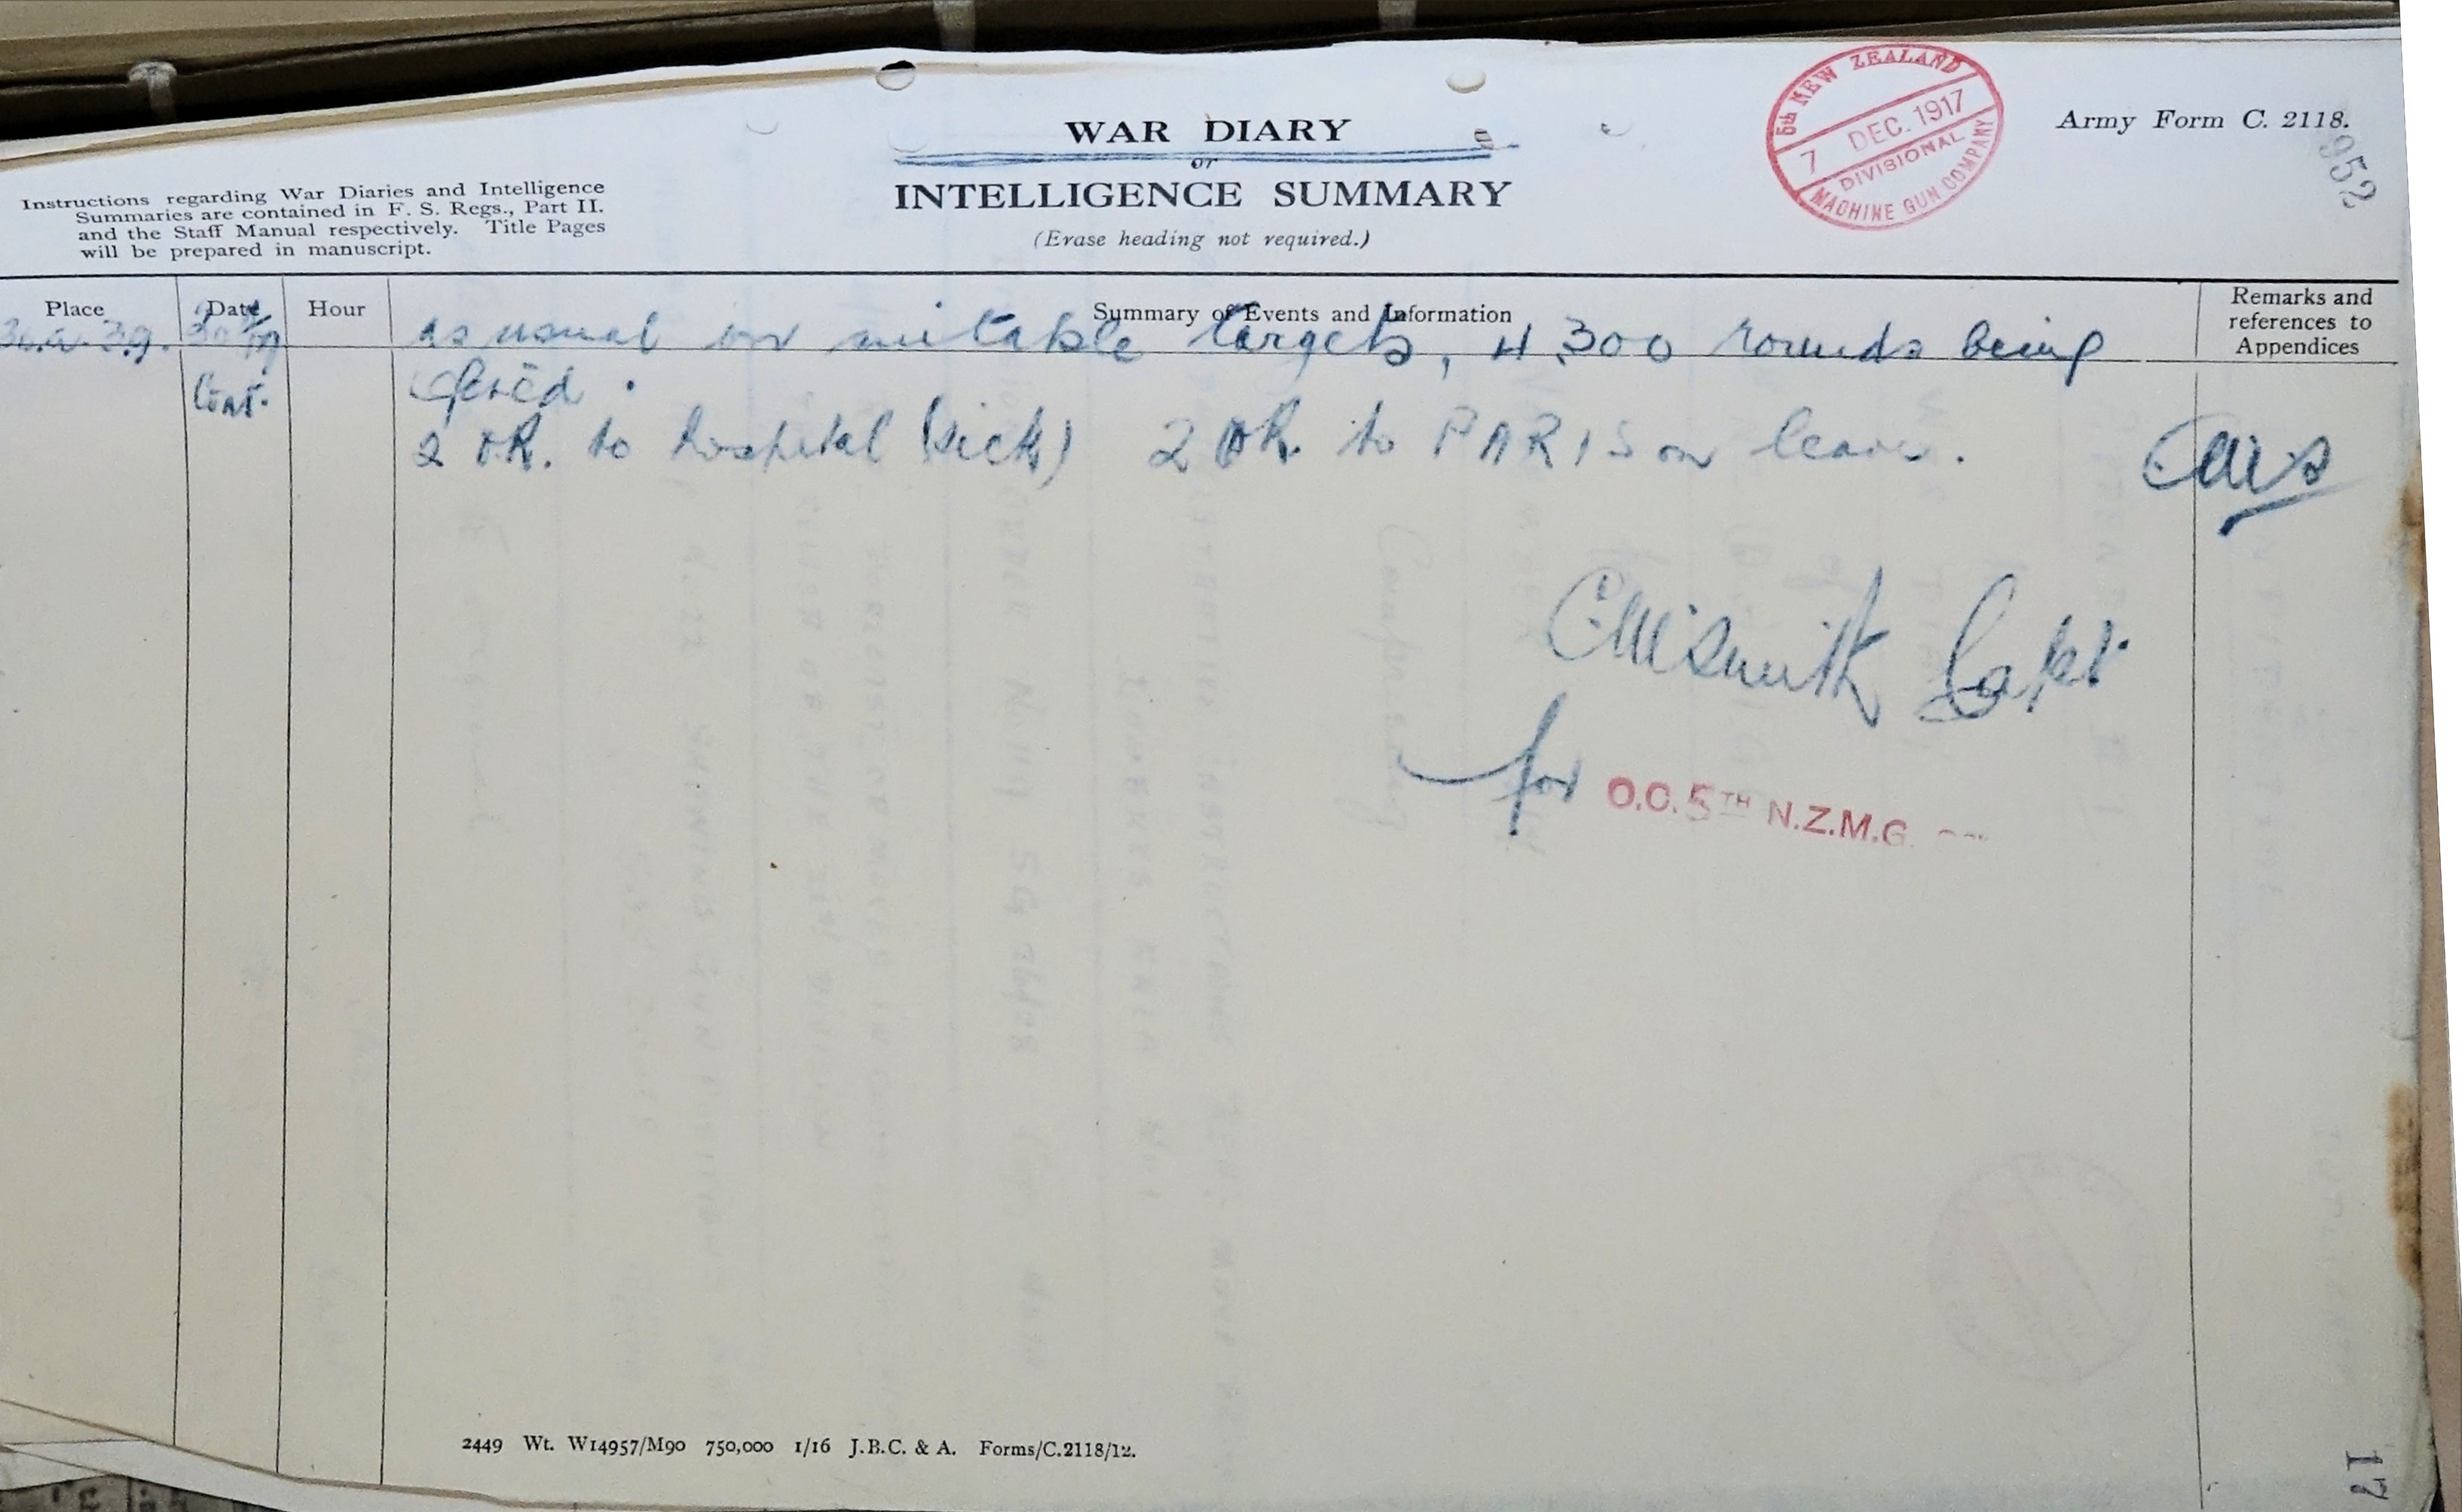 5th NEW ZEALAND
7 DEC. 1917
DIVISIONAL
MACHINE GUN COMPANY
Army Form C. 2118.
952
WAR DIARY
or
INTELLIGENCE SUMMARY
(Erase heading not required.)
Instructions regarding War Diaries and Intelligence
Summaries are contained in F. S. Regs., Part II.
and the Staff Manual respectively. Title Pages
will be prepared in manuscript.
Place Date Hour Summary of Events and Information Remarks and
references to
Appendices
as usual on suitable targets, 4,300 rounds being
Cont. fired.
2 O.R. to hospital (sick) 2 O.R. to PARIS on leave.
Smith Capt.
for O.C. 5TH N.Z.M.G.
2449 Wt. W14957/M90 750,000 1/16 J.B.C. & A. Forms/C.2118/12.
17